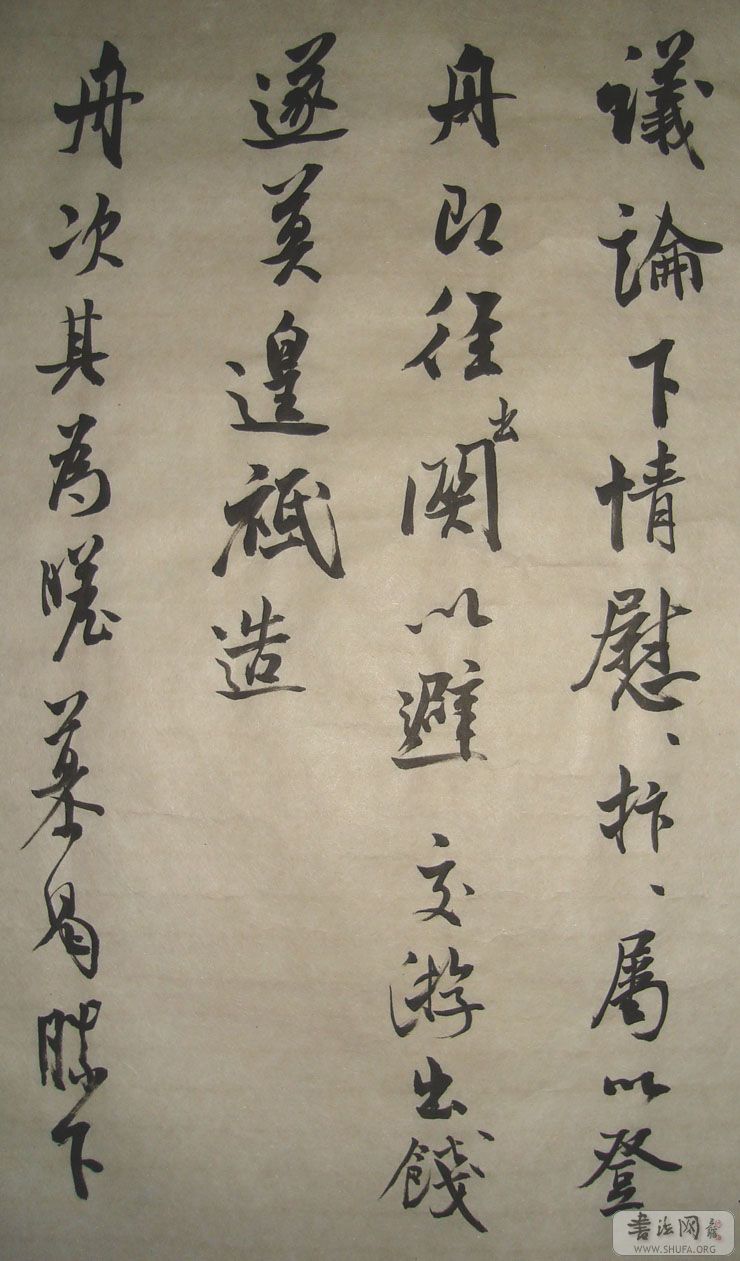 議論下情慰、抃、屬以登
舟即徑出關以避 交游出餞
遂莫遑祗造
舟次其為瞻慕曷勝下
書法网
WWW.SHUFA.ORG